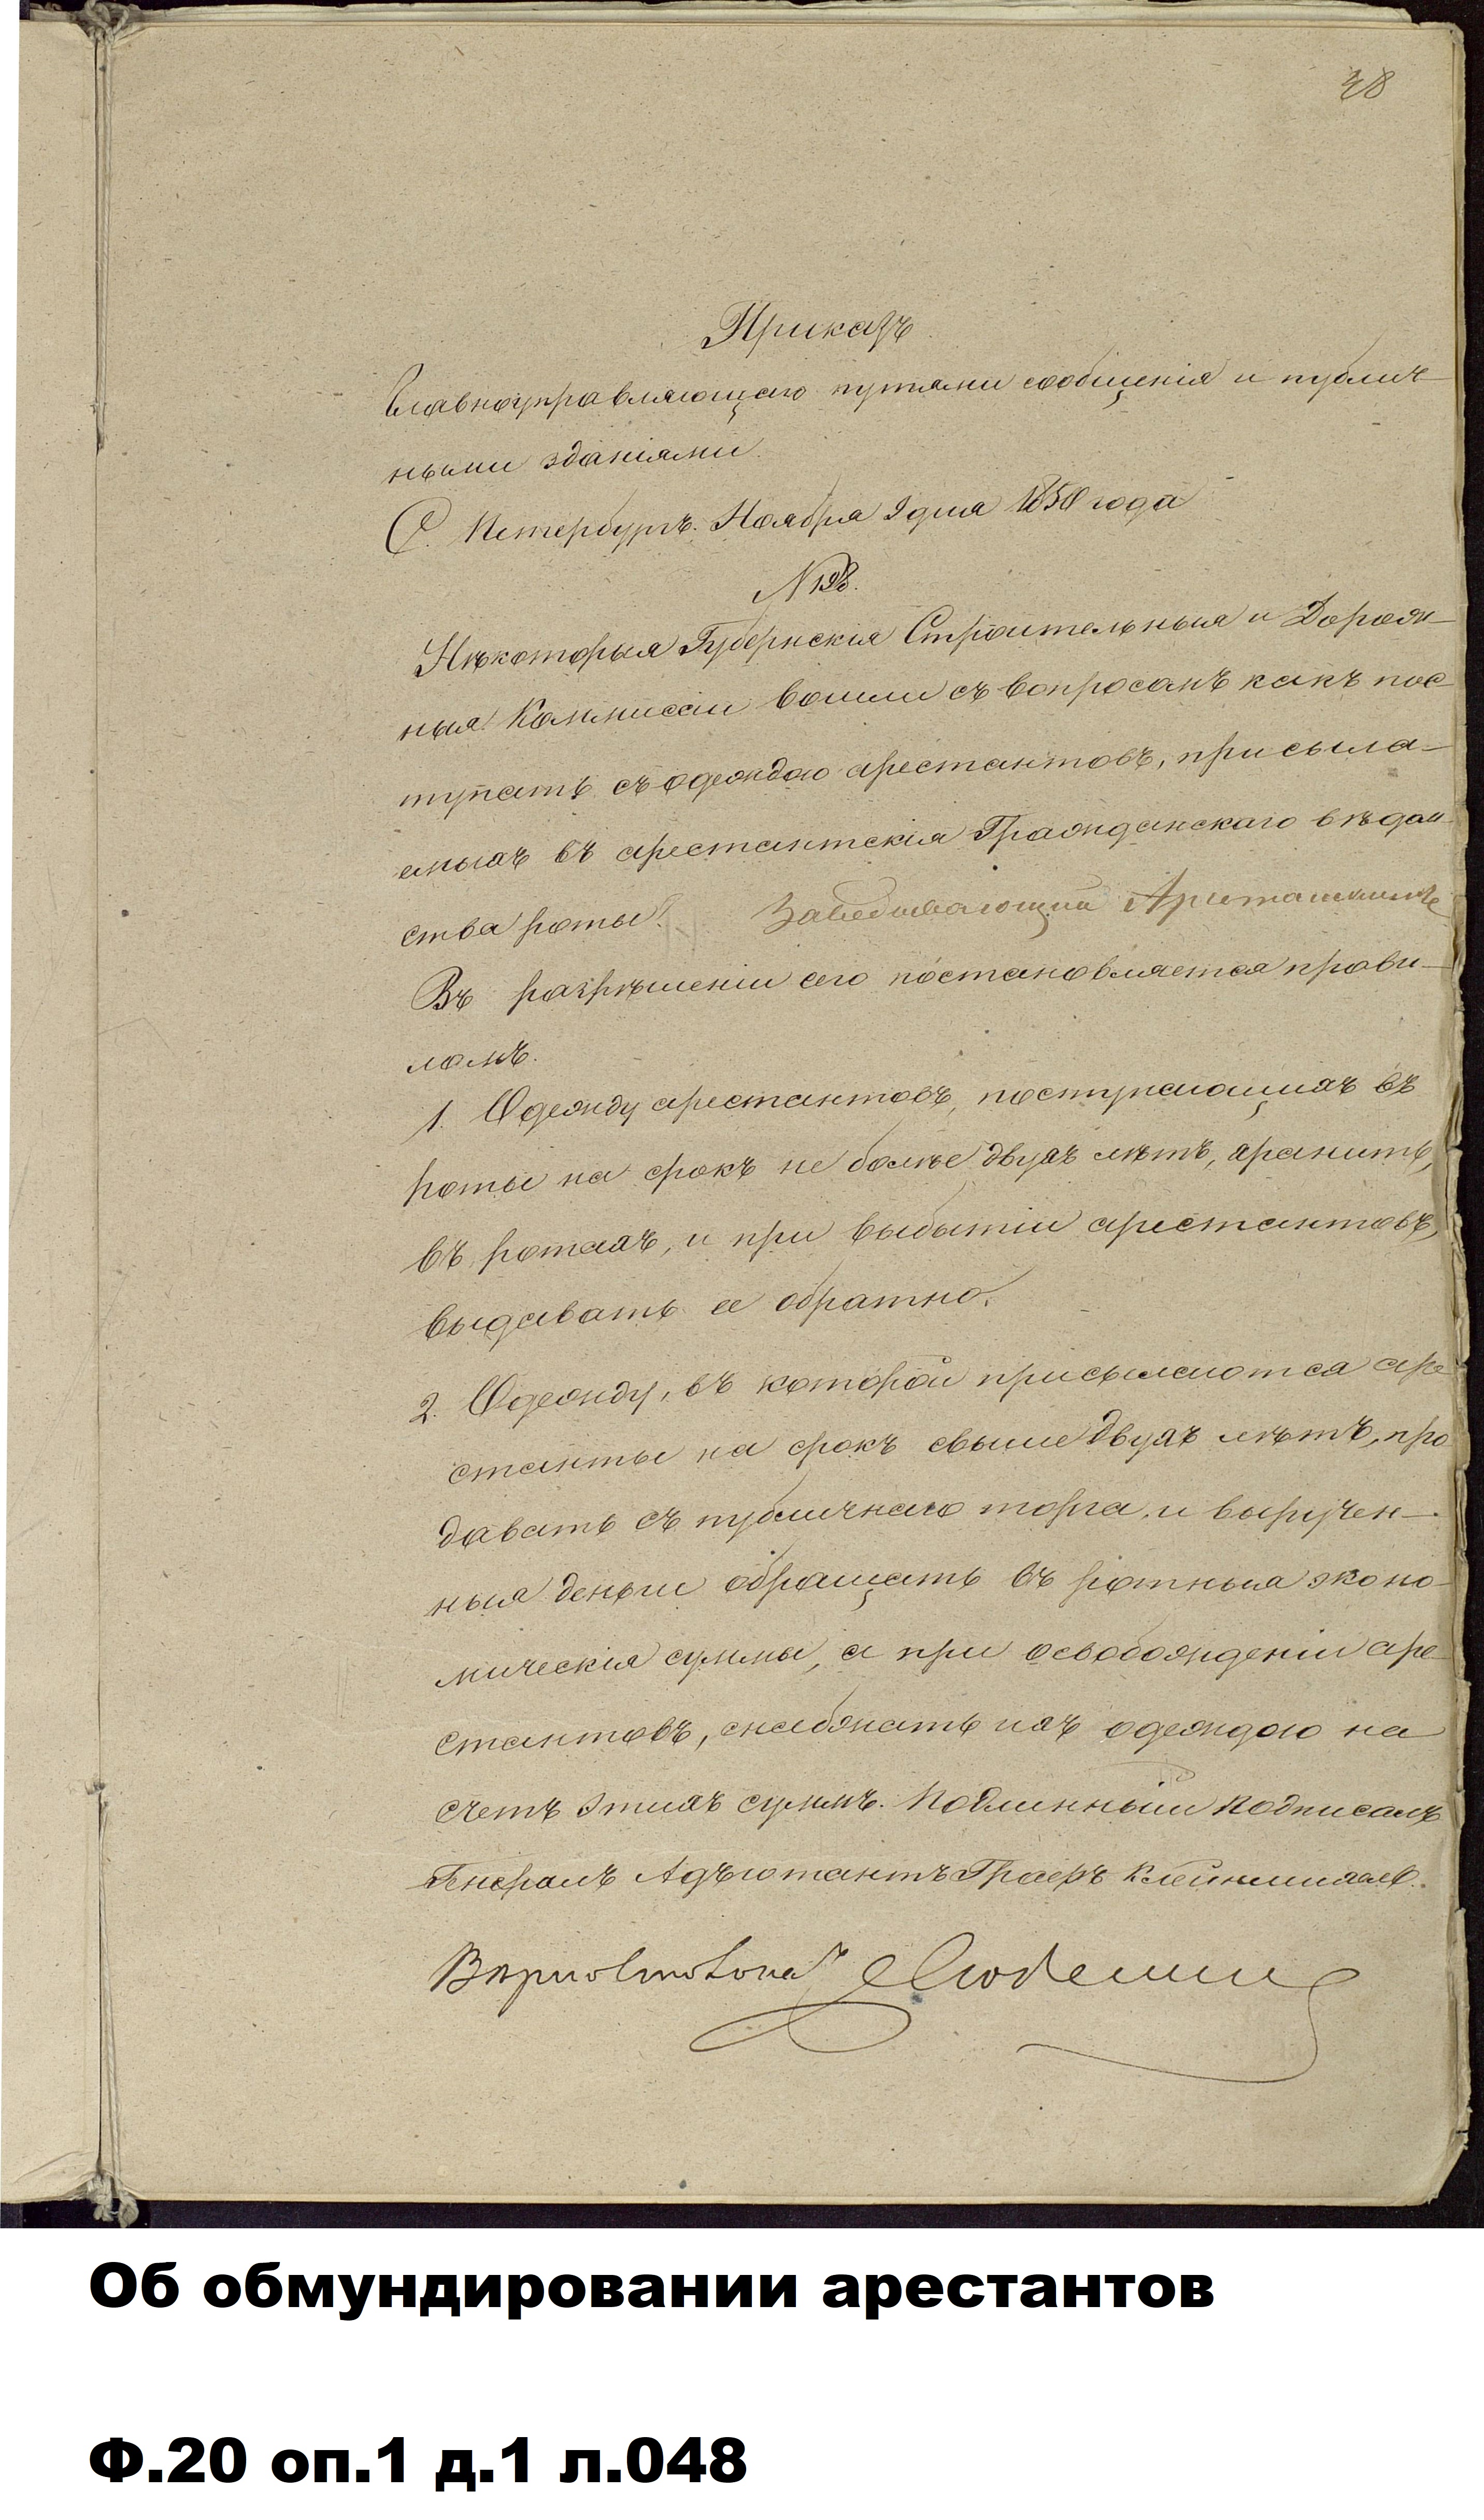 48
Приказъ
Главноуправляющаго путями сообщенія и публич-
ными зданіями.
С. Петербургъ. Ноября 9 дня 1850 года
N 198.
Нѣкоторыя Губернскія Строительныя и Дорож-
ныя Коммисіи вошли съ вопросомъ какъ пос-
тупать съ одеждою арестантовъ, присыла-
емыхъ въ арестантскія Гражданскаго вѣдом-
ства роты? Заведывающий
Въ разрѣшеніи сего постановляется прави-
ломъ.
1. Одежду арестантовъ, поступающихъ въ
роты на срокъ не болѣе двухъ лѣтъ, хранить,
въ ротахъ, и при выбытіи арестантовъ,
выдавать ее обратно.
2. Одежду, въ которой присылаются аре
станты на срокъ свыше двухъ лѣтъ, про
давать съ публичнаго торга, и выручен-
ныя деньги обращать въ ротныя эконо-
мическія суммы, а при освобожденіи аре-
стантовъ, снабжать ихъ одеждою на
счетъ этихъ суммъ. Подлинный подписалъ
Генералъ Адъютантъ Графъ Клейнмихель.
Об обмундировании арестантов
Ф.20 оп.1 д.1 л.048